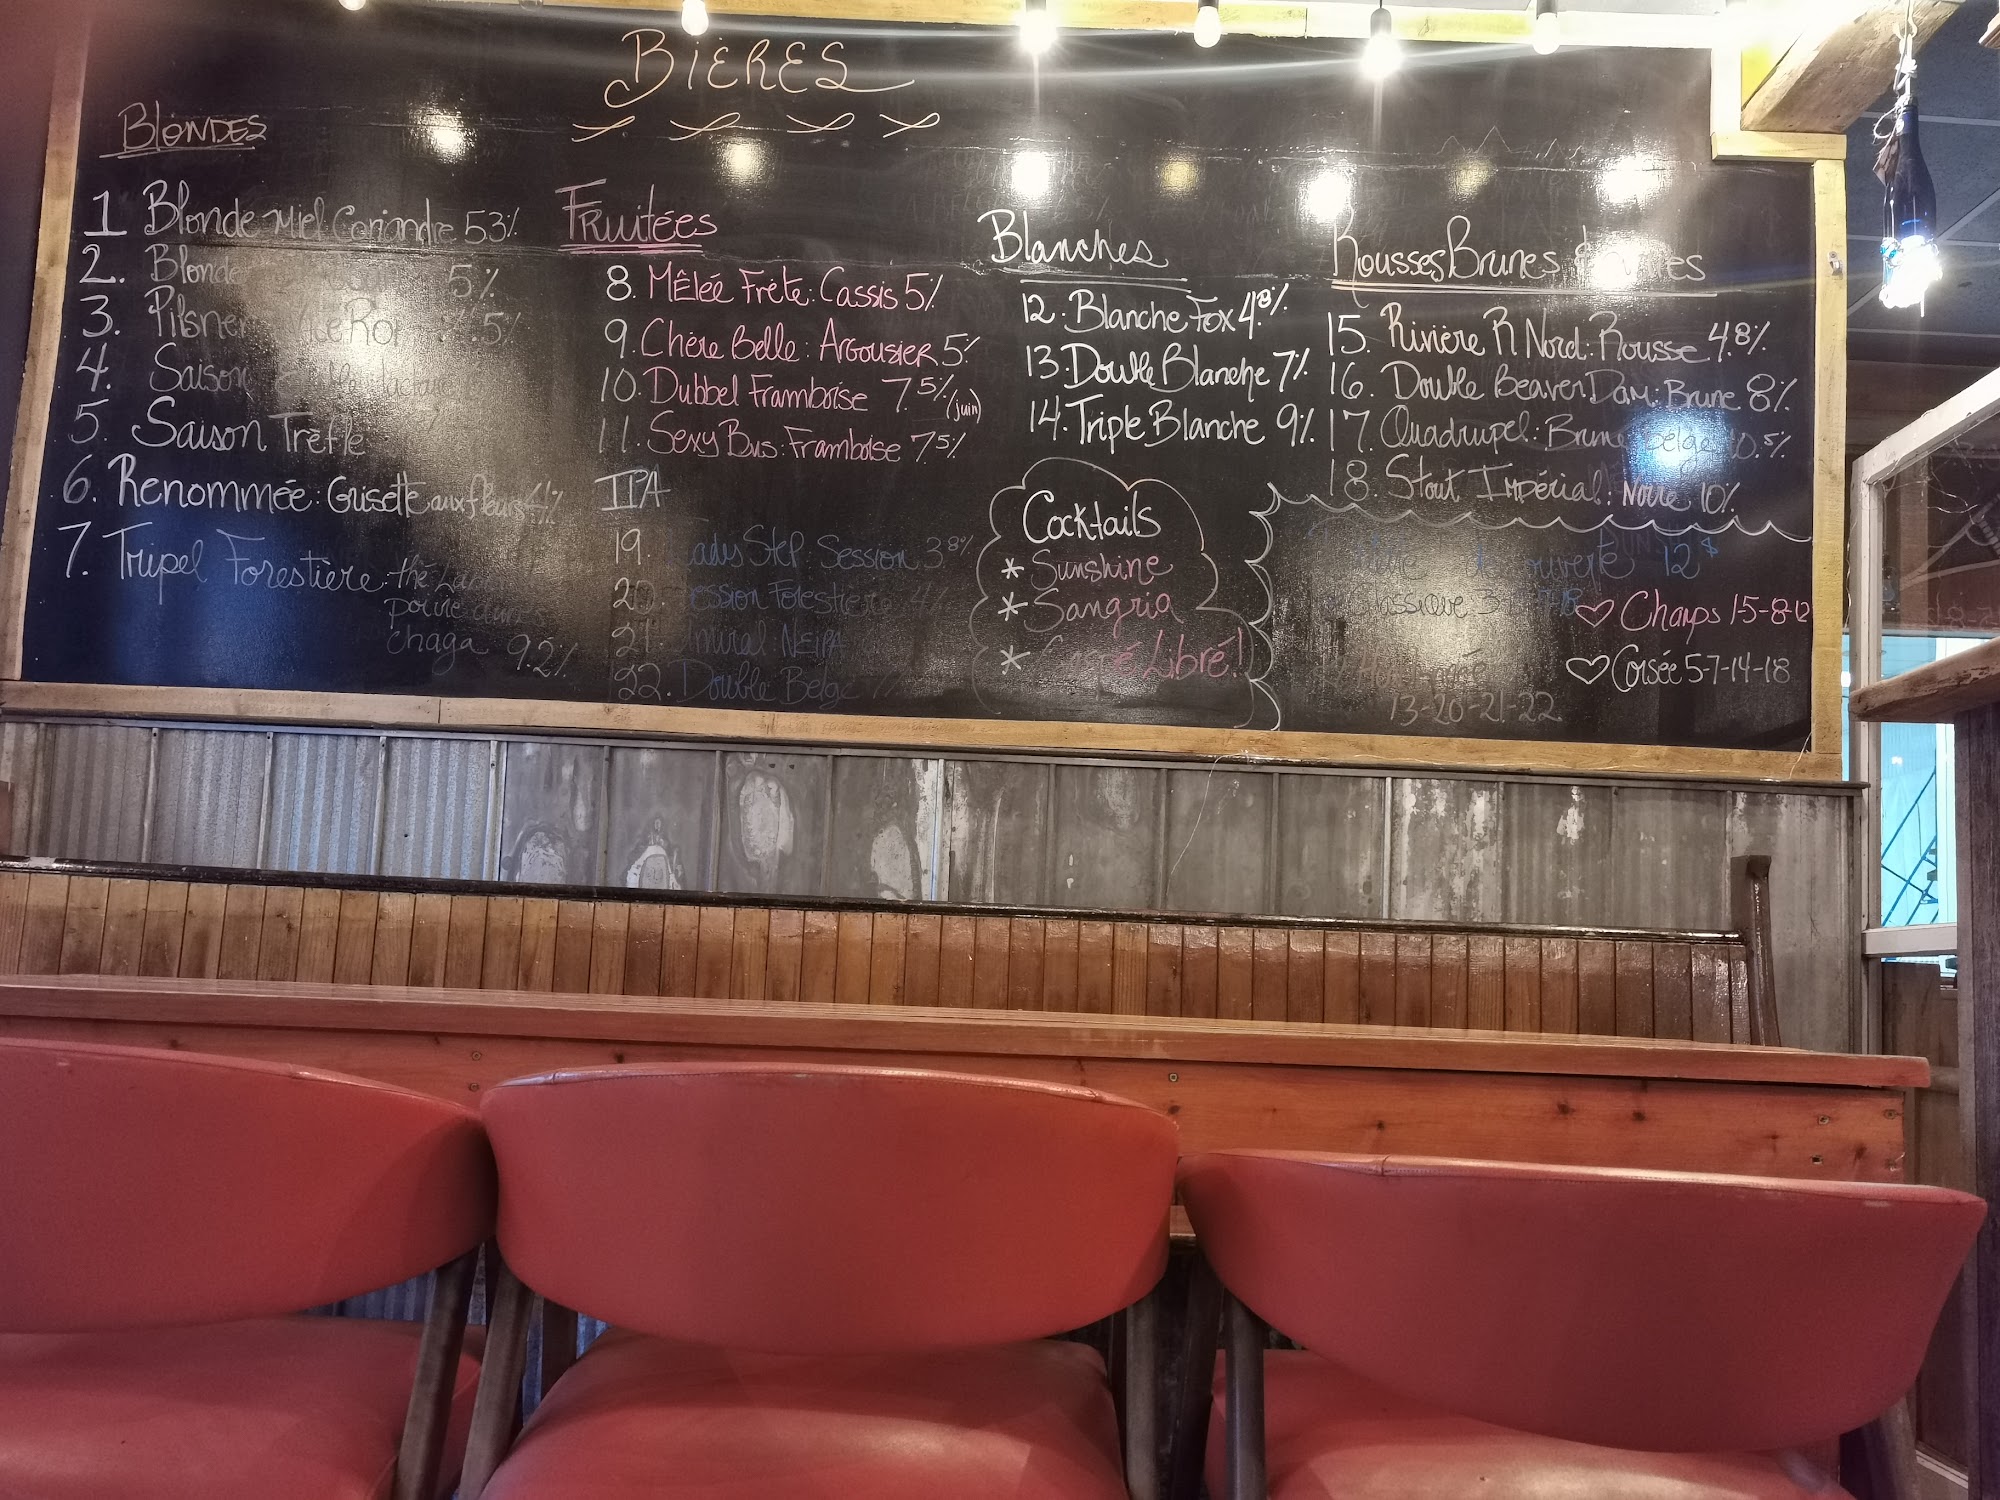 BIÈRES
BLONDES
1 Blonde Miel Coriandre 5.3%
2. Blonde 5%
3. Pilsner 5%
4. Saison
5. Saison Trèfle
6. Renommée: Grisette aux fleurs 4%
7. Tripel Forestière: thé
poivre dunes
chaga 9.2%
FRUITÉES
8. MÊlée Frête: Cassis 5%
9. Chère Belle: Argousier 5%
10. Dubbel Framboise 7.5% (juin)
11. Sexy Bus: Framboise 7.5%
IPA
19. Lady Step Session 3.8%
20. Session Forestière 4%
21. Amiral NEIPA
22. Double Belge 7%
Blanches
12. Blanche Fox 4.8%
13. Double Blanche 7%
14. Triple Blanche 9%
Cocktails
* Sunshine
* Sangria
* Libré!
Rousses Brunes &
15. Rivière R Nord: Rousse 4.8%
16. Double Beaver Dam: Brune 8%
17. Quadrupel: Brune Belge 10.5%
18. Stout Impérial: Noire 10%
12$
Classique
♡ Champs 1-5-8-12
♡ Corsée 5-7-14-18
13-20-21-22